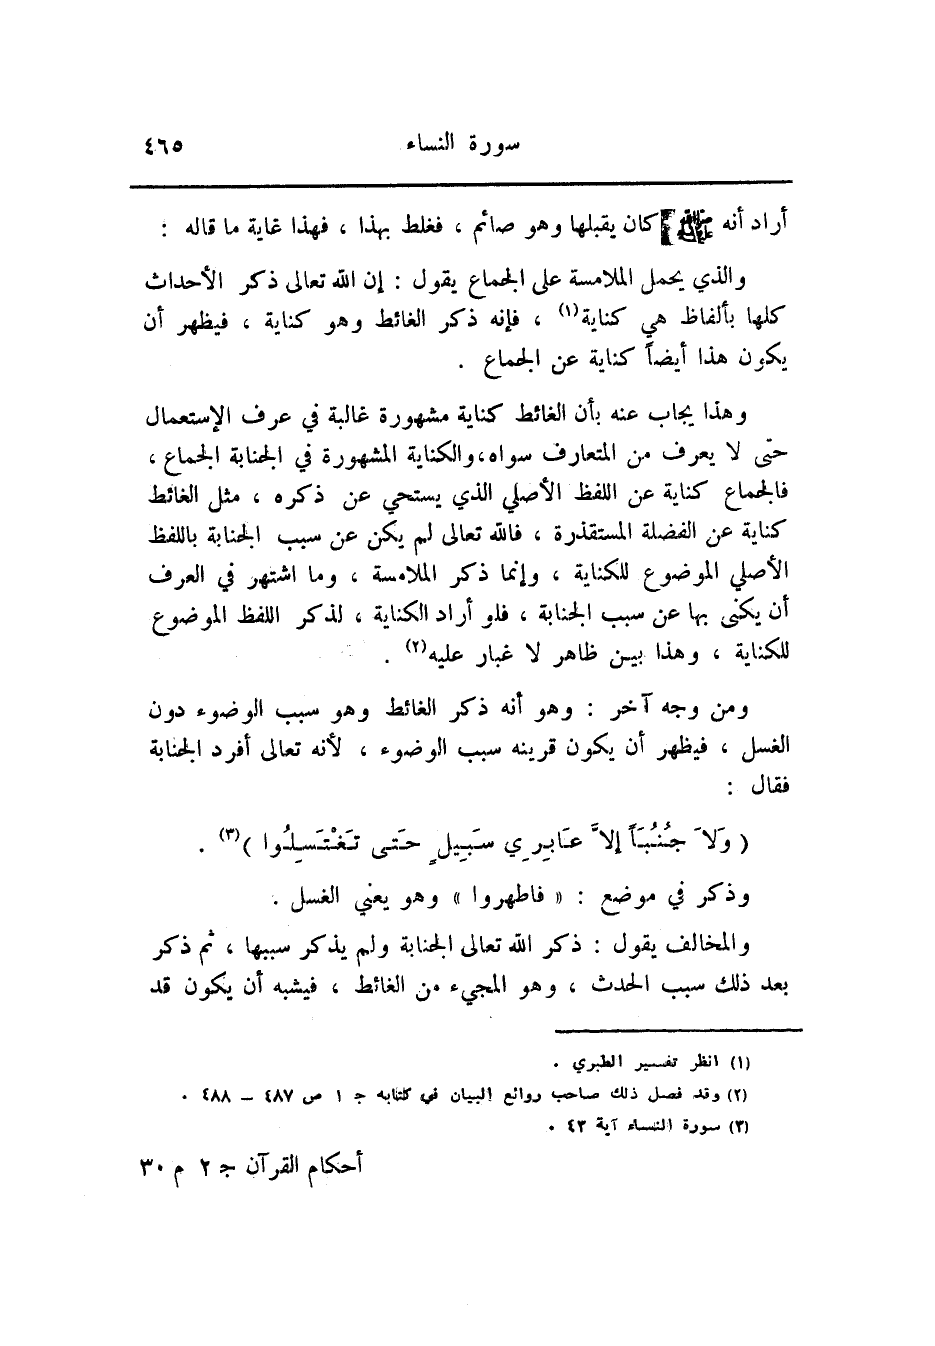 سورة النساء ٤٦٥
أراد أنه ﷺ كان يقبلها وهو صائم ، فغلط بهذا ، فهذا غاية ما قاله :
والذي يحمل الملامسة على الجماع يقول : إن الله تعالى ذكر الأحداث
كلها بألفاظ هي كناية(١) ، فإنه ذكر الغائط وهو كناية ، فيظهر أن
يكون هذا أيضاً كناية عن الجماع .
وهذا يجاب عنه بأن الغائط كناية مشهورة غالبة في عرف الإستعمال
حتى لا يعرف من المتعارف سواه،والكناية المشهورة في الجنابة الجماع ،
فالجماع كناية عن اللفظ الأصلي الذي يستحي عن ذكره ، مثل الغائط
كناية عن الفضلة المستقذرة ، فالله تعالى لم يكن عن سبب الجنابة باللفظ
الأصلي الموضوع للكناية ، وإنما ذكر الملامسة ، وما اشتهر في العرف
أن يكنى بها عن سبب الجنابة ، فلو أراد الكناية ، لذكر اللفظ الموضوع
للكناية ، وهذا بين ظاهر لا غبار عليه(٢) .
ومن وجه آخر : وهو أنه ذكر الغائط وهو سبب الوضوء دون
الغسل ، فيظهر أن يكون قرينه سبب الوضوء ، لأنه تعالى أفرد الجنابة
فقال :
( وَلاَ جُنُبَاً إلاَّ عَابِرِي سَبِيلٍ حَتى تَغْتَسِلُوا )(٣) .
وذكر في موضع : « فاطهروا » وهو يعني الغسل .
والمخالف يقول : ذكر الله تعالى الجنابة ولم يذكر سببها ، ثم ذكر
بعد ذلك سبب الحدث ، وهو المجيء من الغائط ، فيشبه أن يكون قد
(١) انظر تفسير الطبري .
(٢) وقد فصل ذلك صاحب روائع البيان في كتابه ج ١ ص ٤٨٧ – ٤٨٨ .
(٣) سورة النساء آية ٤٣ .
أحكام القرآن ج ٢ م ٣٠